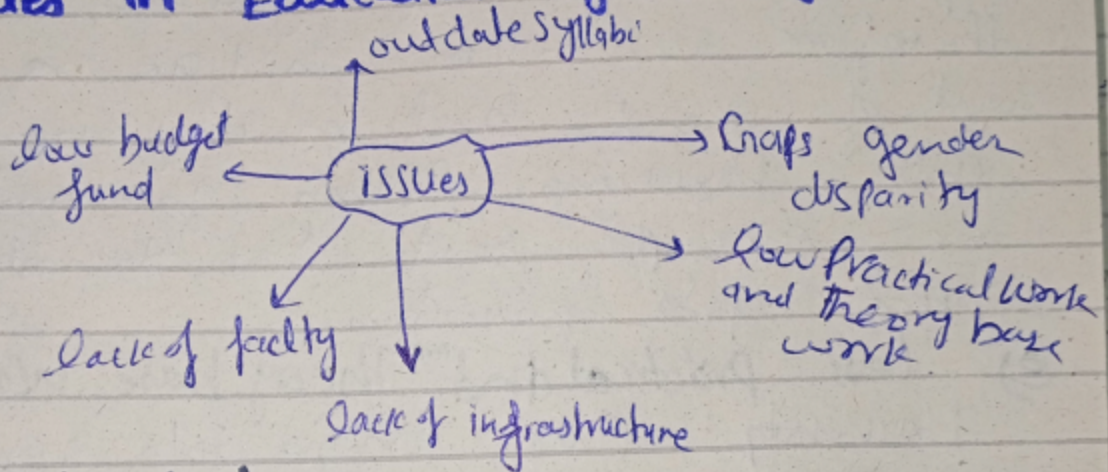 in
outdate syllabi
low budget
fund
issues
Gaps gender
disparity
low Practical work
and Theory base
work
lack of faclty
lack of infrastructure